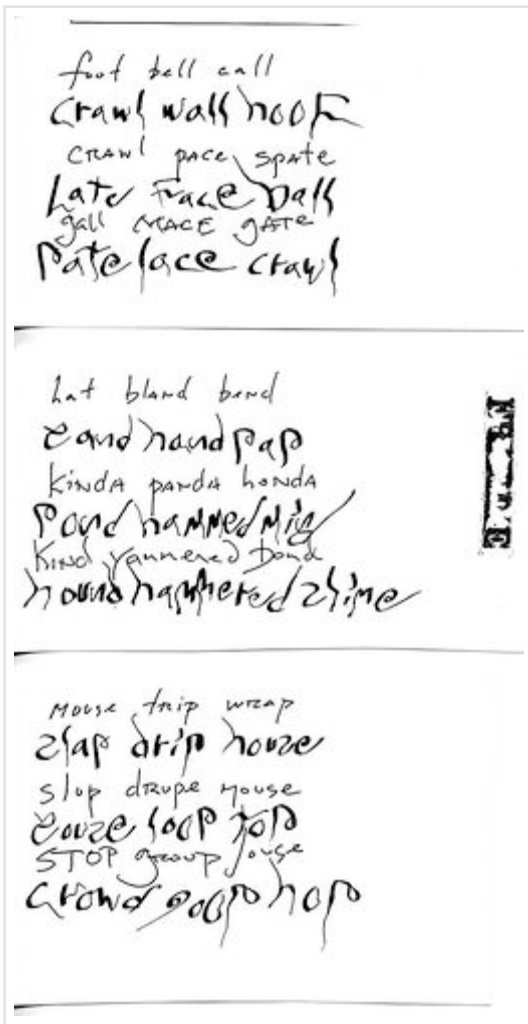 foot ball call
crawl wall hoof
CRAWl pace spate
late face ball
gall MACE gATe
pate lace crawl
hat bland bend
sand hand pap
KINDA PANDA HONDA
pond hammed
KIND yammered Bond
hound hammered shime
MOUSE trip wrap
slap drip house
slop drupe mouse
loop
STOP group
crowd goop hop